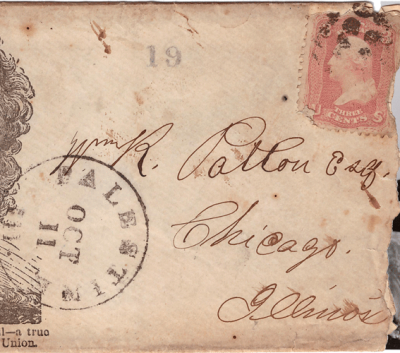 19
THREE
CENTS
U S
Wm K. Patton Esq.
Chicago.
Illinois
PALESTINE
OCT
11
l—a true
Union.